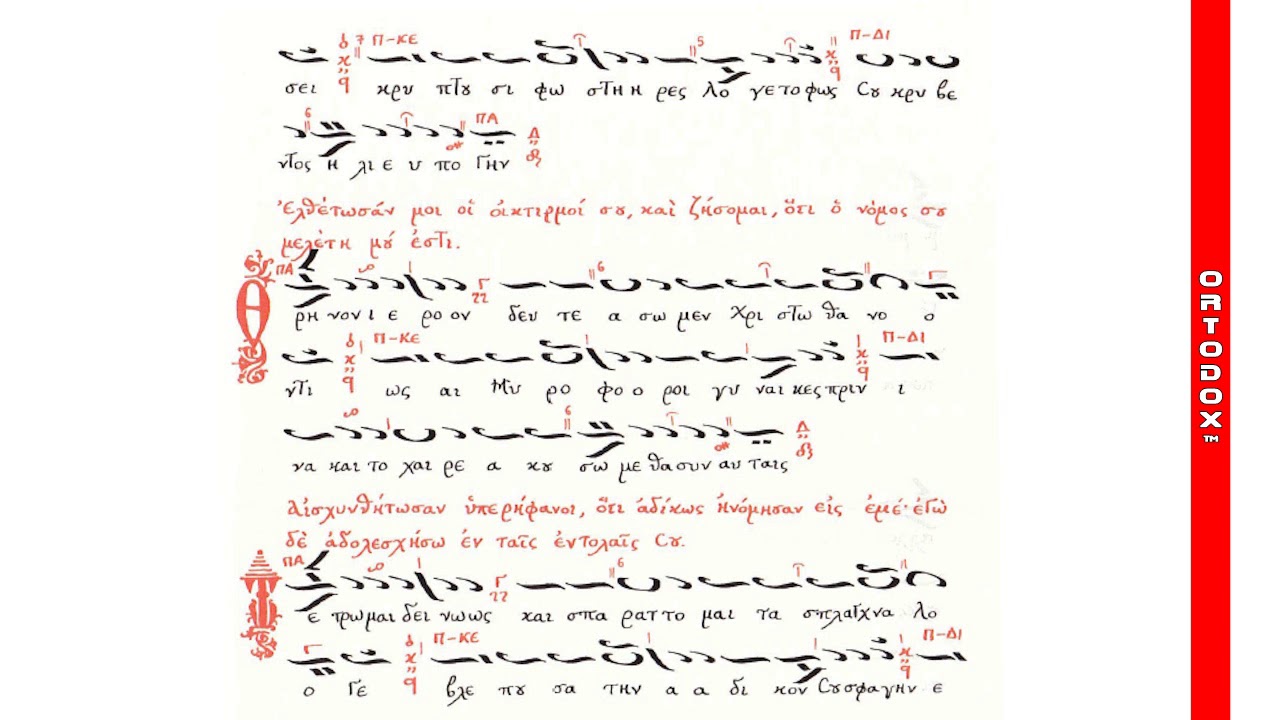 σει κρυ πτου σι φω στη η ρες λο γε το φως Σου κρυ βε
ντος η λι ε υ πο Γην
Ἐλθέτωσάν μοι οἱ οἰκτιρμοί σου, καὶ ζήσομαι, ὅτι ὁ νόμος σου
μελέτη μού ἐστι.
Θ ρη νον ι ε ρο ον δευ τε α σω μεν Χρι στω θα νο ο
ντι ως αι Μυ ρο φο ο ροι γυ ναι κες πριν ι
να και το χαι ρε α κου σω με θα συν αυ ταις
Αἰσχυνθήτωσαν ὑπερήφανοι, ὅτι ἀδίκως ἠνόμησαν εἰς ἐμέ· ἐγὼ
δὲ ἀδολεσχήσω ἐν ταῖς ἐντολαῖς Σου.
Τ ε τρω μαι δει νω ως και σπα ρατ το μαι τα σπλαγχνα λο
ο Γε βλε που σα την α α δι κον Σου σφα γην ε
ORTODOX™